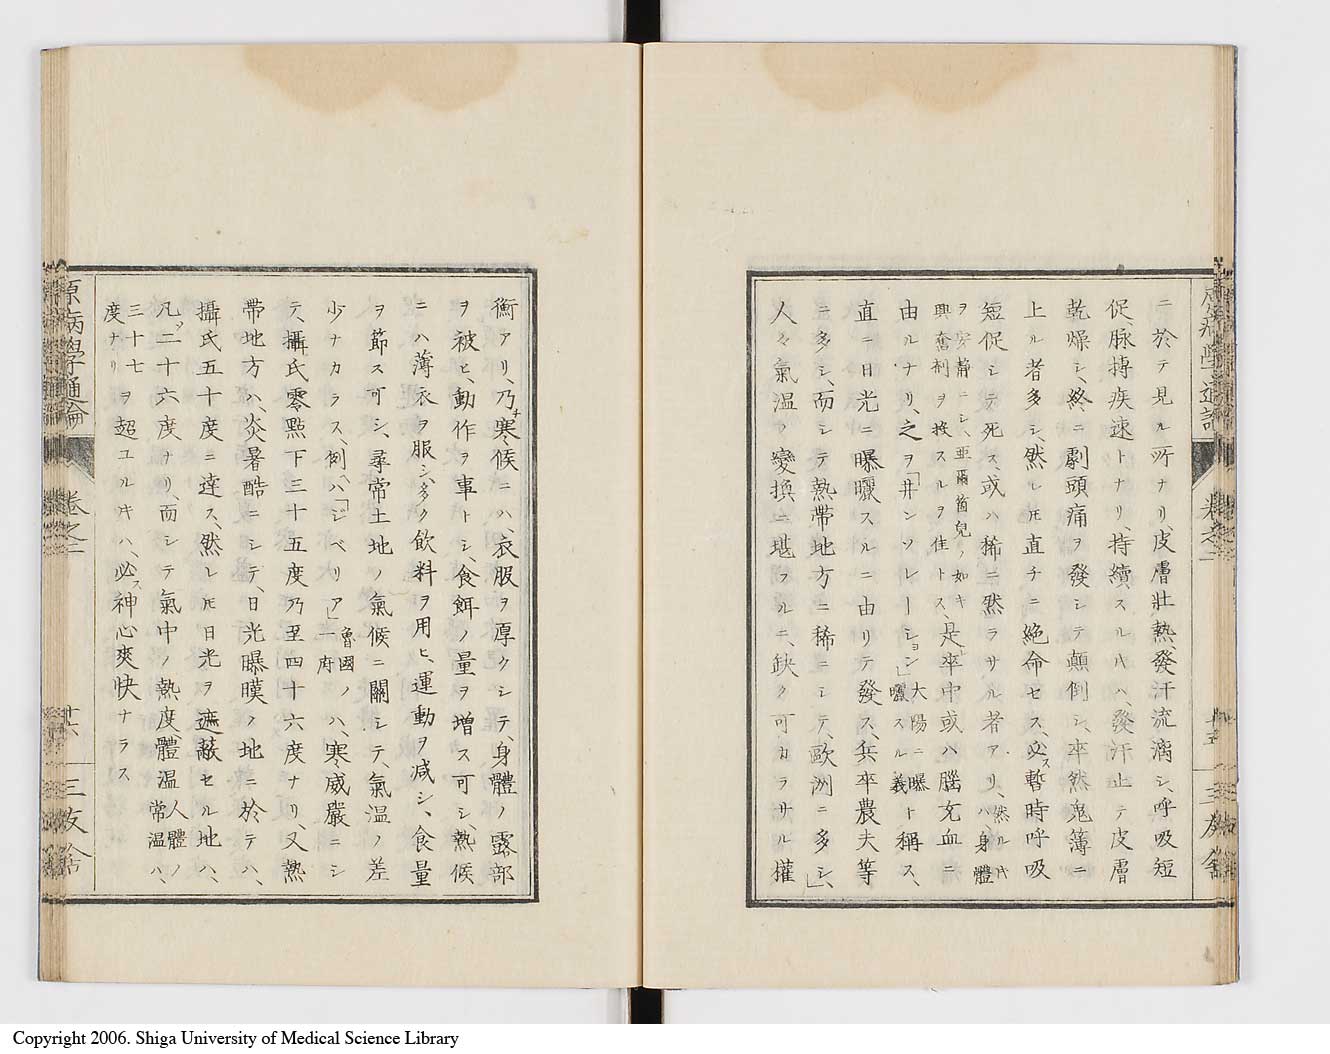 ニ於テ見ル所ナリ、皮膚壯熱、發汗流漓シ、呼吸短
促、脉搏疾速トナリ、持續スルヰハ、發汗止テ皮膚
乾燥シ、終ニ劇頭痛ヲ發シテ顛倒シ、卒然鬼簿ニ
上ル者多シ、然レ𪜈直チニ絶命セス、必ス暫時呼吸
短促シテ死ス、或ハ稀ニ然ラサル者アリ、然ルキハ身體
ヲ安靜ニシ、亜爾箇兒ノ如キ
興奮劑ヲ投スルヲ佳トス、是レ卒中或ハ腦充血ニ
由ルナリ、之ヲ「井ンソレーション」大陽ニ曝曬スル義ト稱ス、
直ニ日光ニ曝曬スルニ由リテ發ス、兵卒農夫等
ニ多シ、而シテ熱帶地方ニ稀ニシテ、歐洲ニ多シ」、
人々氣温ノ變換ニ堪フルニ、缺ク可カラサル權
原病學通論 卷之二 十五 三友舎
衡アリ、乃チ寒候ニハ、衣服ヲ厚クシテ、身體ノ露部
ヲ被ヒ、動作ヲ事トシ、食餌ノ量ヲ増ス可シ、熱候
ニハ薄衣ヲ服シ、多ク飲料ヲ用ヒ、運動ヲ減シ、食量
ヲ節ス可シ、尋常土地ノ氣候ニ關シテ、氣温ノ差
少ナカラス、例ハ「シベリア」魯國ノ一府ハ、寒威嚴ニシ
テ、攝氏零點下三十五度乃至四十六度ナリ、又熱
帶地方ハ、炎暑酷ニシテ、日光曝暵ノ地ニ於テハ、
攝氏五十度ニ達ス、然レ𪜈日光ヲ遮蔽セル地ハ、
凡ソ二十六度ナリ、而シテ氣中ノ熱度體温人體ノ常温ハ、
三十七度ナリヲ超ユルキハ、必ス神心爽快ナラス
原病學通論 卷之二 十六 三友舎
Copyright 2006. Shiga University of Medical Science Library